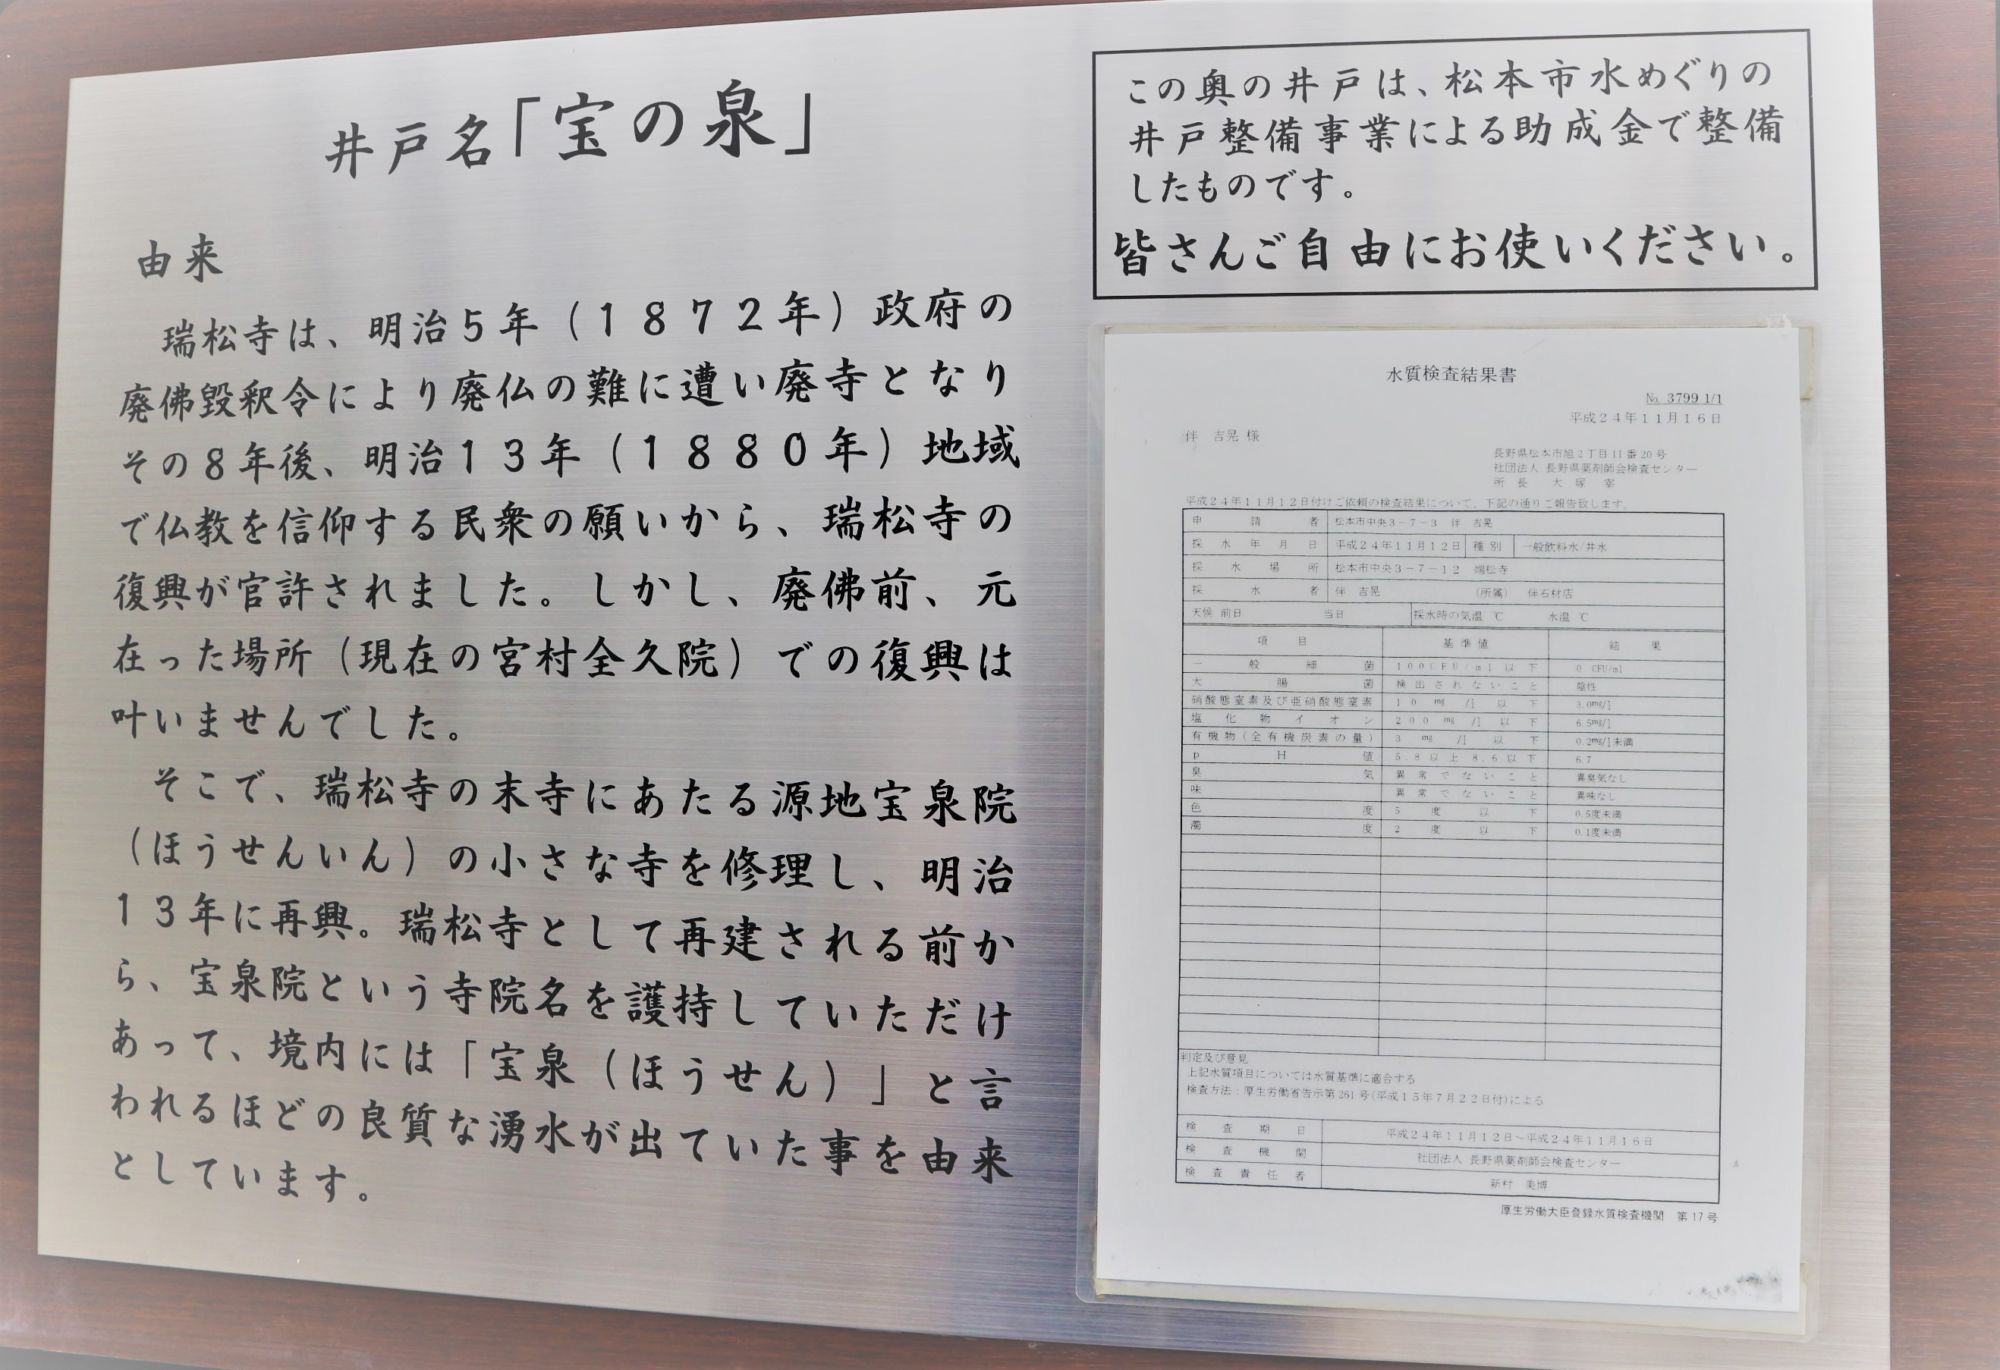 井戸名「宝の泉」
由来
瑞松寺は、明治5年（1872年）政府の
廃佛毀釈令により廃仏の難に遭い廃寺となり
その8年後、明治13年（1880年）地域
で仏教を信仰する民衆の願いから、瑞松寺の
復興が官許されました。しかし、廃佛前、元
在った場所（現在の宮村全久院）での復興は
叶いませんでした。
そこで、瑞松寺の末寺にあたる源地宝泉院
（ほうせんいん）の小さな寺を修理し、明治
13年に再興。瑞松寺として再建される前か
ら、宝泉院という寺院名を護持していただけ
あって、境内には「宝泉（ほうせん）」と言
われるほどの良質な湧水が出ていた事を由来
としています。
この奥の井戸は、松本市水めぐりの
井戸整備事業による助成金で整備
したものです。
皆さんご自由にお使いください。
水質検査結果書
№ 3799 1/1
平成24年11月16日
伴 吉晃 様
長野県松本市旭2丁目11番20号
社団法人 長野県薬剤師会検査センター
所 長 大 塚 宰
平成24年11月12日付けご依頼の検査結果について、下記の通りご報告致します。
申請者 松本市中央3-7-3 伴 吉晃
採水年月日 平成24年11月12日 種別 一般飲料水/井水
採水場所 松本市中央3-7-12 瑞松寺
採水者 伴 吉晃 （所属） 伴石材店
天候 前日 当日 採水時の気温 ℃ 水温 ℃
項目 基準値 結果
一般細菌 100CFU/ml以下 0 CFU/ml
大腸菌 検出されないこと 陰性
硝酸態窒素及び亜硝酸態窒素 10mg/l以下 3.0mg/l
塩化物イオン 200mg/l以下 6.5mg/l
有機物（全有機炭素の量） 3mg/l以下 0.2mg/l未満
pH値 5.8以上8.6以下 6.7
臭気 異常でないこと 異臭気なし
味 異常でないこと 異味なし
色度 5度以下 0.5度未満
濁度 2度以下 0.1度未満
判定及び意見
上記水質項目については水質基準に適合する
検査方法：厚生労働省告示第261号(平成15年7月22日付)による
検査期日 平成24年11月12日～平成24年11月16日
検査機関 社団法人 長野県薬剤師会検査センター
検査責任者 新村 美博
厚生労働大臣登録水質検査機関 第17号